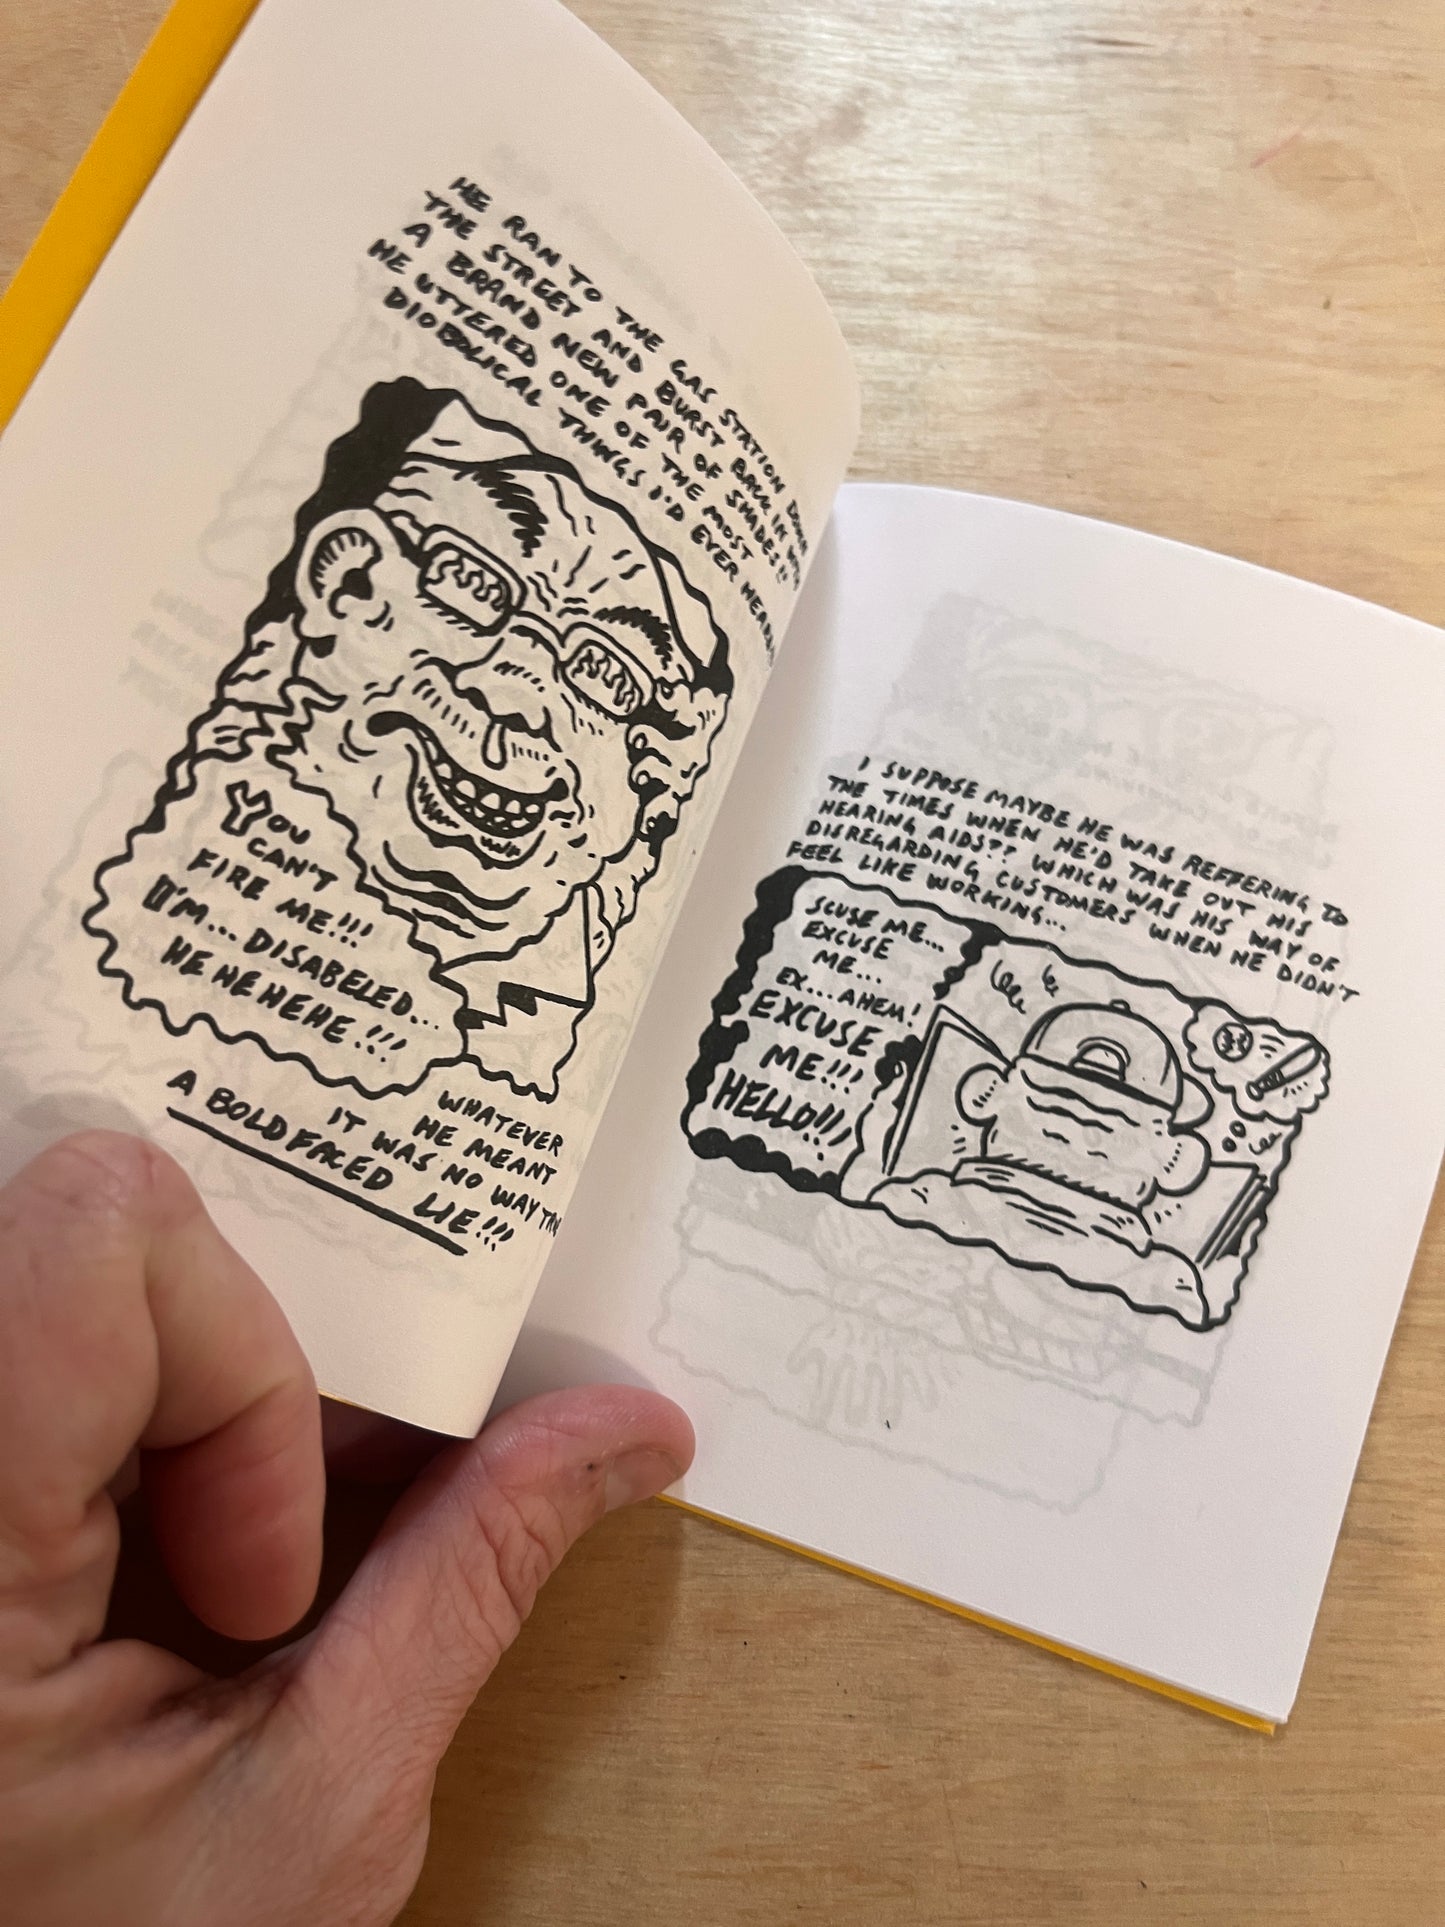 HE RAN TO THE GAS STATION DOWN
THE STREET AND BURST BACK IN WITH
A BRAND NEW PAIR OF SHADES!!
HE UTTERED ONE OF THE MOST
DIOBOLICAL THINGS I'D EVER HEARD
YOU
CAN'T
FIRE ME!!!
I'M...DISABELED...
HE HE HEHE!!!
WHATEVER
HE MEANT
IT WAS NO WAY
A BOLDFACED LIE!!!
I SUPPOSE MAYBE HE WAS REFFERING TO
THE TIMES WHEN HE'D TAKE OUT HIS
HEARING AIDS?? WHICH WAS HIS WAY OF
DISREGARDING CUSTOMERS WHEN HE DIDN'T
FEEL LIKE WORKING...
SCUSE ME...
EXCUSE
ME...
EX...AHEM!
EXCUSE
ME!!!
HELLO!!!